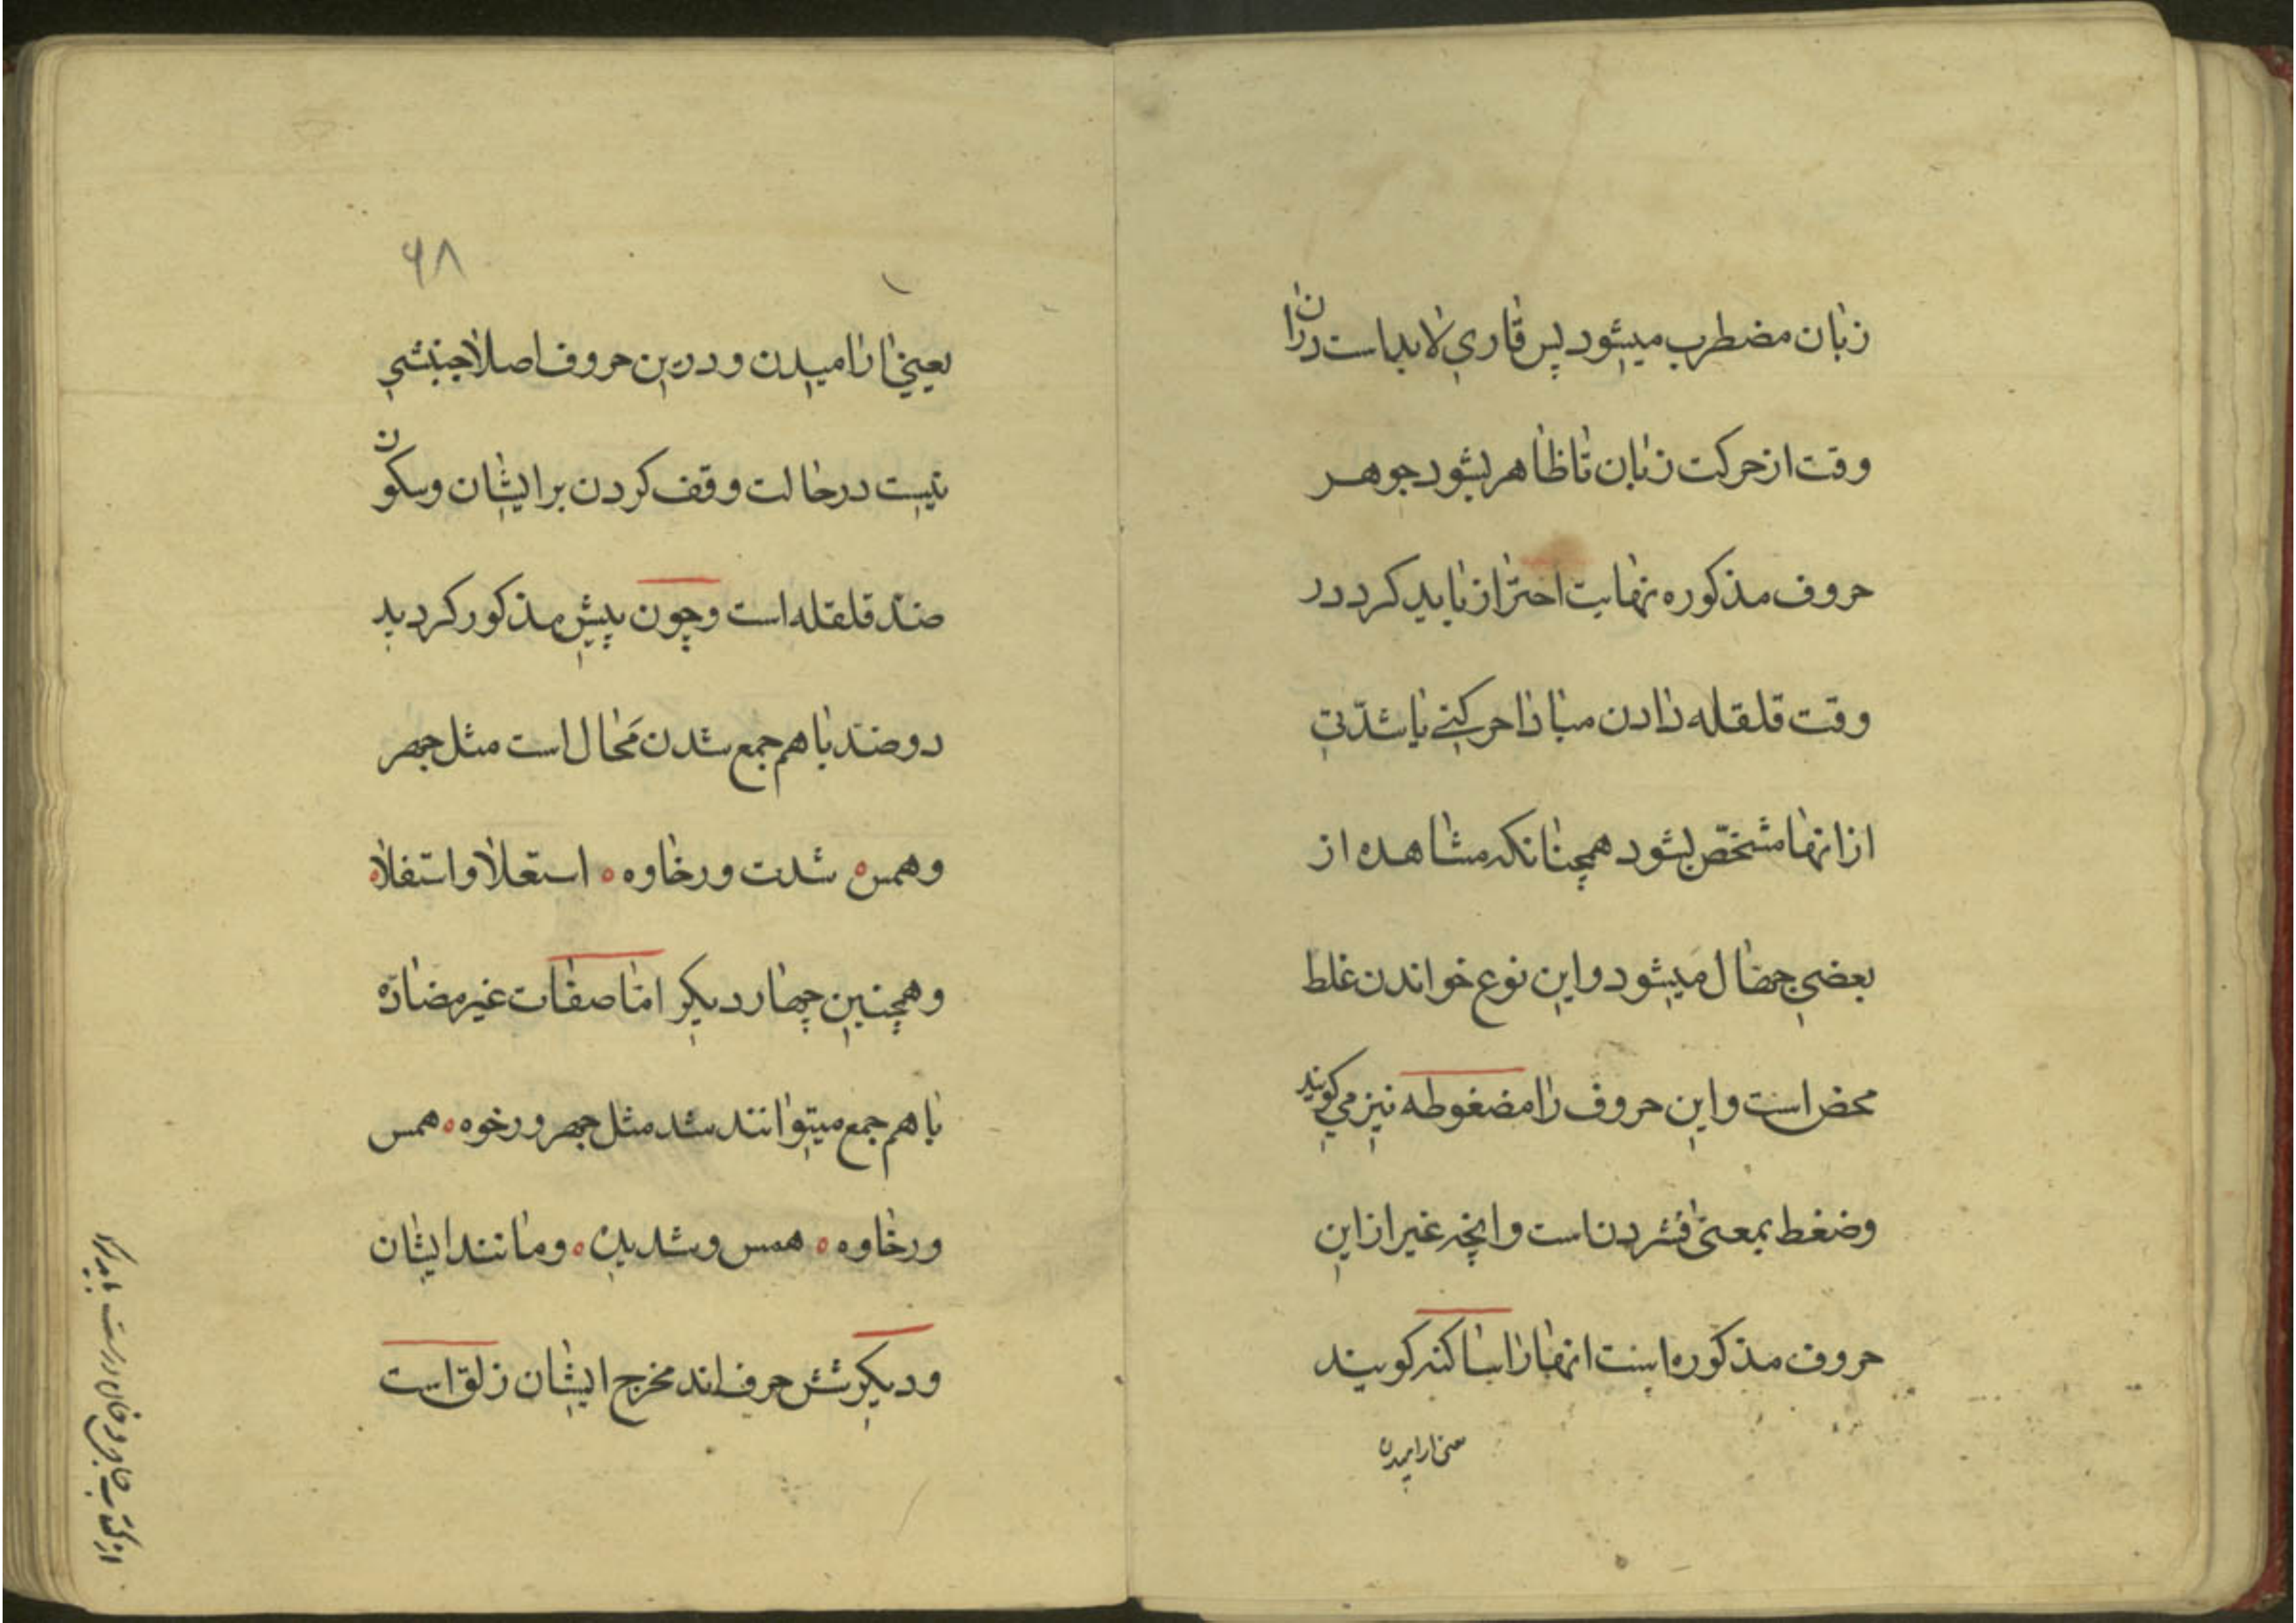 زبان مضطرب میشود پس قاری لابد است دران
وقت از حرکت زبان تا ظاهر بشود جوهر
حروف مذکوره نهایت احتراز باید کرد در
وقت قلقله دادن مبادا حرکتی یا شدّتی
از انها مشخّص بشود همچنانکه مشاهده از
بعضی جهّال میشود و این نوع خواندن غلط
محض است و این حروف را مضغوطه نیز می کویند
وضغط بمعنی فشردن است و انچه غیر از این
حروف مذکوره است انها را ساکنه کویند
یعنی ارامیدن
۶۸
یعنی ارامیدن و درین حروف اصلا جنبشی
نیست در حالت وقف کردن بر ایشان وسکون
ضدّ قلقله است وچون پیش مذکور کردید
دو ضد با هم جمع شدن مَحال است مثل جهر
وهمس شدت ورخاوه استعلا و استفلا
وهمچنین چهار دیکر امّا صفات غیر مضادّه
با هم جمع میتوانند شد مثل جهر و رخوه همس
ورخاوه همس و شدید و مانند ایشان
ودیکر شش حرف اند مخرج ایشان زلق است